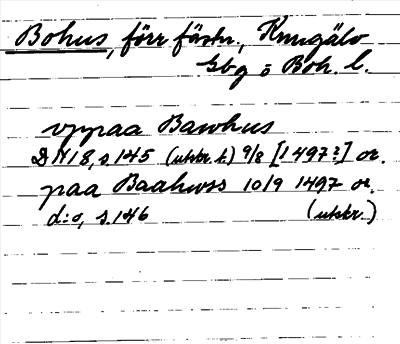 Bohus, förr fästn., Kungälv
Gbg o Boh. l.
vppaa Bawhus
DN 18, s. 145 (utskr. k) 9/8 [1497?] or.
paa Baahwss 10/9 1497 or.
d:o, s. 146 (utskr.)